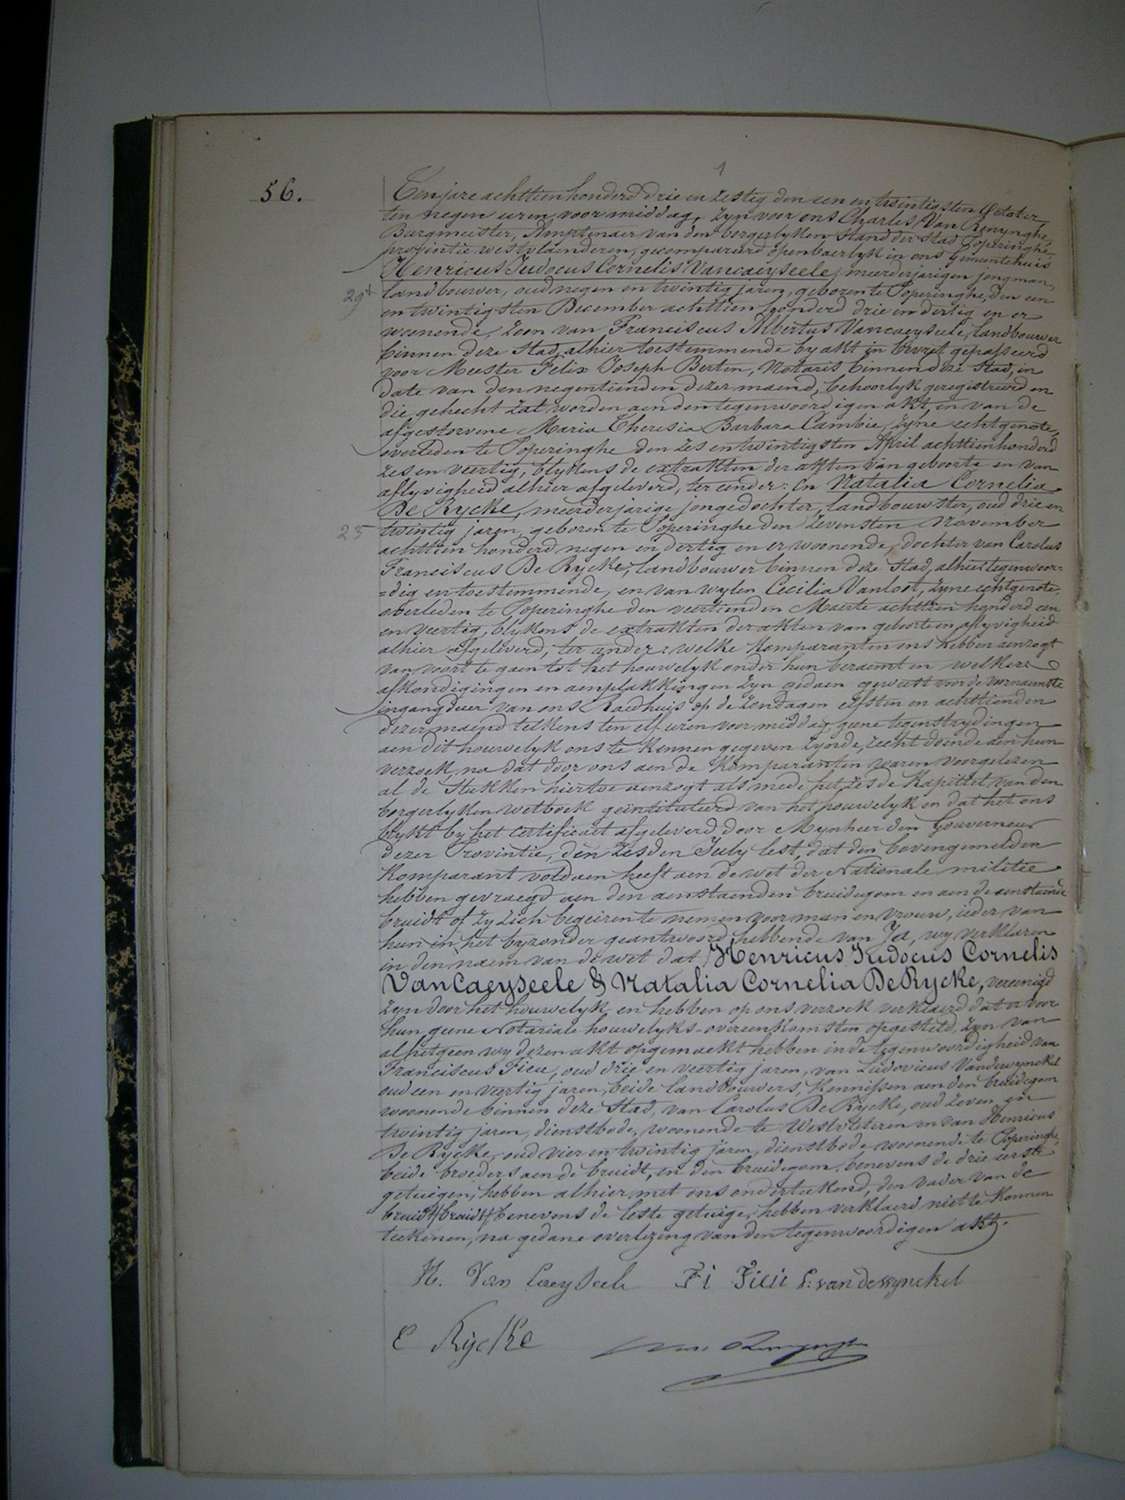 1
56.
Ten jare achttien honderd drie en zestig den een en twintigsten October
ten negen uren voormiddag, zyn voor ons Charles Van Renynghe,
Burgmeister, Amptenaer van den borgerlyken Stand der Stad Poperinghe,
provintie westvlaenderen, gecompareerd openbaerlyk in ons Gemeentehuis
Henricus Judocus Cornelis Vancaeyseele, meerderjarigen jongman,
29
landbouwer, oud negen en twintig jaren, geboren te Poperinghe, den een
en twintigsten December achttien honderd drie en dertig en er
woonende, zoon van Franciscus Albertus Vancaeyseele, landbouwer
binnen deze Stad, alhier toestemmende by akt in brevet gepasseerd
voor Meester Felix Joseph Bertin, Notaris binnen deze Stad, in
date van den negentienden dezer maend, behoorlyk geregistreerd en
die gehecht zal worden aen den tegenwoordigen akt, en van de
afgestorvene Maria Theresia Barbara Cambie, zyne echtgenote,
overleden te Poperinghe den zes en twintigsten April achttienhonderd
zes en veertig, blykens de extrakten der akten van geboorte en van
aflyvigheid alhier afgeleverd, ter ander: en Natalia Cornelia
De Rycke, meerderjarige jongedochter, landbouwster, oud drie en
23
twintig jaren, geboren te Poperinghe den zevensten November
achttien honderd negen en dertig en er woonende, dochter van Carolus
Franciscus De Rycke, landbouwer binnen deze Stad, alhier tegenwoor=
=dig en toestemmende, en van wylen Cecilia Vanloot, zyne echtgenote,
overleden te Poperinghe den veertienden Maerte achttien honderd een
en veertig, blykens de extrakten der akten van geboorte en aflyvigheid
alhier afgeleverd, ter ander: welke komparanten ons hebben aenzogt
van voort te gaen tot het houwelyk onder hun beraemt en welkers
afkondigingen en aenplakkingen zyn gedaen geweest voor de vornaemste
ingangdeur van ons Raedhuis op de zondagen elfsten en achttienden
dezer maend telkens ten elf uren voormiddag, geene tegenstrydingen
aen dit houwelyk ons te kennen gegeven zynde, recht doende aen hun
verzoek, na dat door ons aen de komparanten waren voorgelezen
al de Stukken hiertoe aenzogt als mede het zesde kapittel van den
borgerlyken wetboek geïntituleerd van het houwelyk en dat het ons
blykt by het certificaet afgeleverd door Mynheer den Gouverneur
dezer Provintie, den zesden July lest, dat den bovengemelden
komparant voldaen heeft aen de wet der Nationale militie
hebben gevraegd aen den aenstaenden bruidegom en aen de aenstaende
bruidt of zy zich begeiren te nemen voor man en vrouw, ieder van
hun in het byzonder geantwoord hebbende van Ja, wy verklaren
in den naem van de wet dat Henricus Judocus Cornelis
Van Caeyseele & Natalia Cornelia De Rycke, vereenigd
zyn door het houwelyk, en hebben op ons verzoek verklaerd dat er voor
hun geene Notariale houwelyks-overeenkomsten opgesteld zyn van
al hetgeen wy dezen akt opgemaekt hebben in de tegenwoordigheid van
Franciscus Fieu, oud drie en veertig jaren, van Ludovicus Vandewynckel
oud een en veertig jaren, beide landbouwers, kennissen aen den bruidegom
woonende binnen deze Stad, van Carolus De Rycke, oud zeven en
twintig jaren, dienstbode, woonende te Westvleteren en van Henricus
De Rycke, oud vier en twintig jaren, dienstbode woonende te Poperinghe,
beide broeders aen de bruidt, en den bruidegom, benevens de drie eerste
getuigen, hebben alhier met ons onderteekend, den vader van de
bruidt, bruidt benevens de leste getuige, hebben verklaerd niet te konnen
teekenen, na gedane overlezing van den tegenwoordigen akt.
H. Van Caeyseele Fi Fieu L. van dewynckel
C Rycke